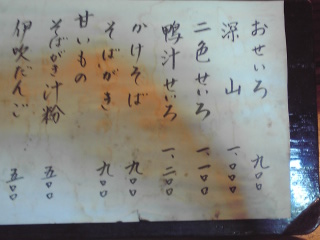 おせいろ 九〇〇
深山 一、〇〇〇
二色せいろ 一、一〇〇
鴨汁せいろ 一、二〇〇
かけそば 九〇〇
そばがき 九〇〇
甘いもの
そばがき汁粉 五〇〇
伊吹だんご 五〇〇